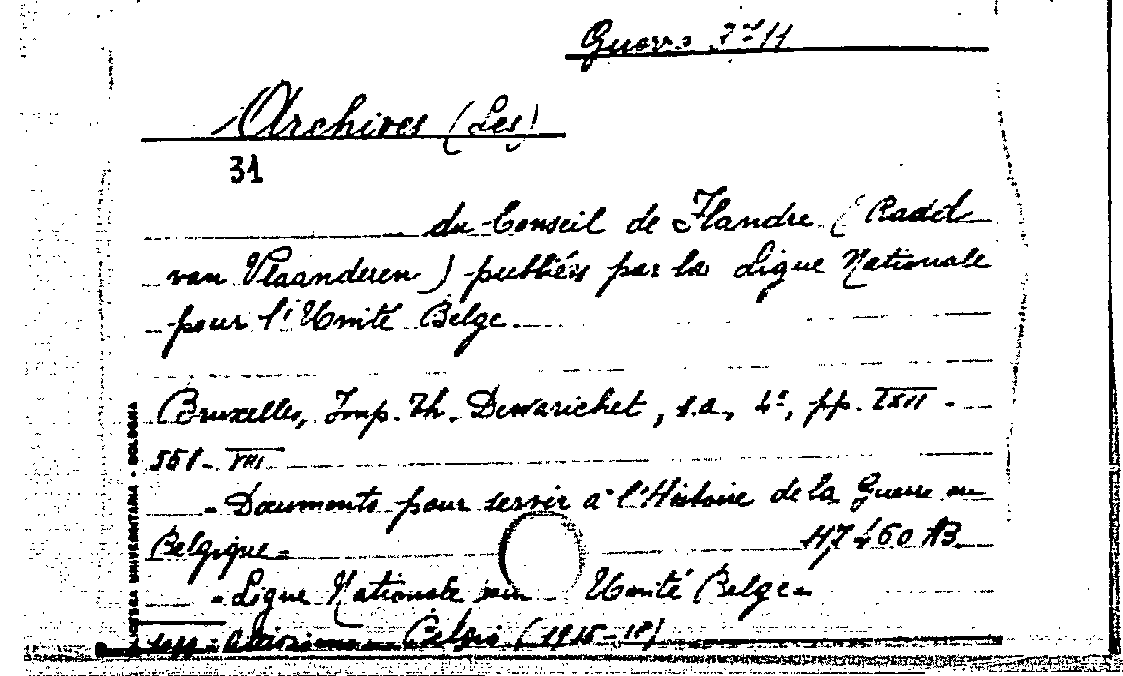 Archives (Les)
31
du Conseil de Flandre (Raad
van Vlaanderen) publiés par la Ligue Nationale
pour l'Unité Belge
Bruxelles, Imp. Th. Dewarichet, s.a., 4°, pp. LXII -
551 - VIII
- Documents pour servir à l'Histoire de la Guerre en
Belgique -
- Ligue Nationale Unité Belge -
Belgio (1915-18)
BIBLIOTECA UNIVERSITARIA - BOLOGNA